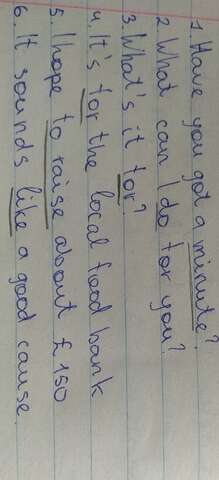 1. Have you got a minute?
2. What can I do for you?
3. What's it for?
4. It's for the local food bank
5. I hope to raise about £150
6. It sounds like a good cause.